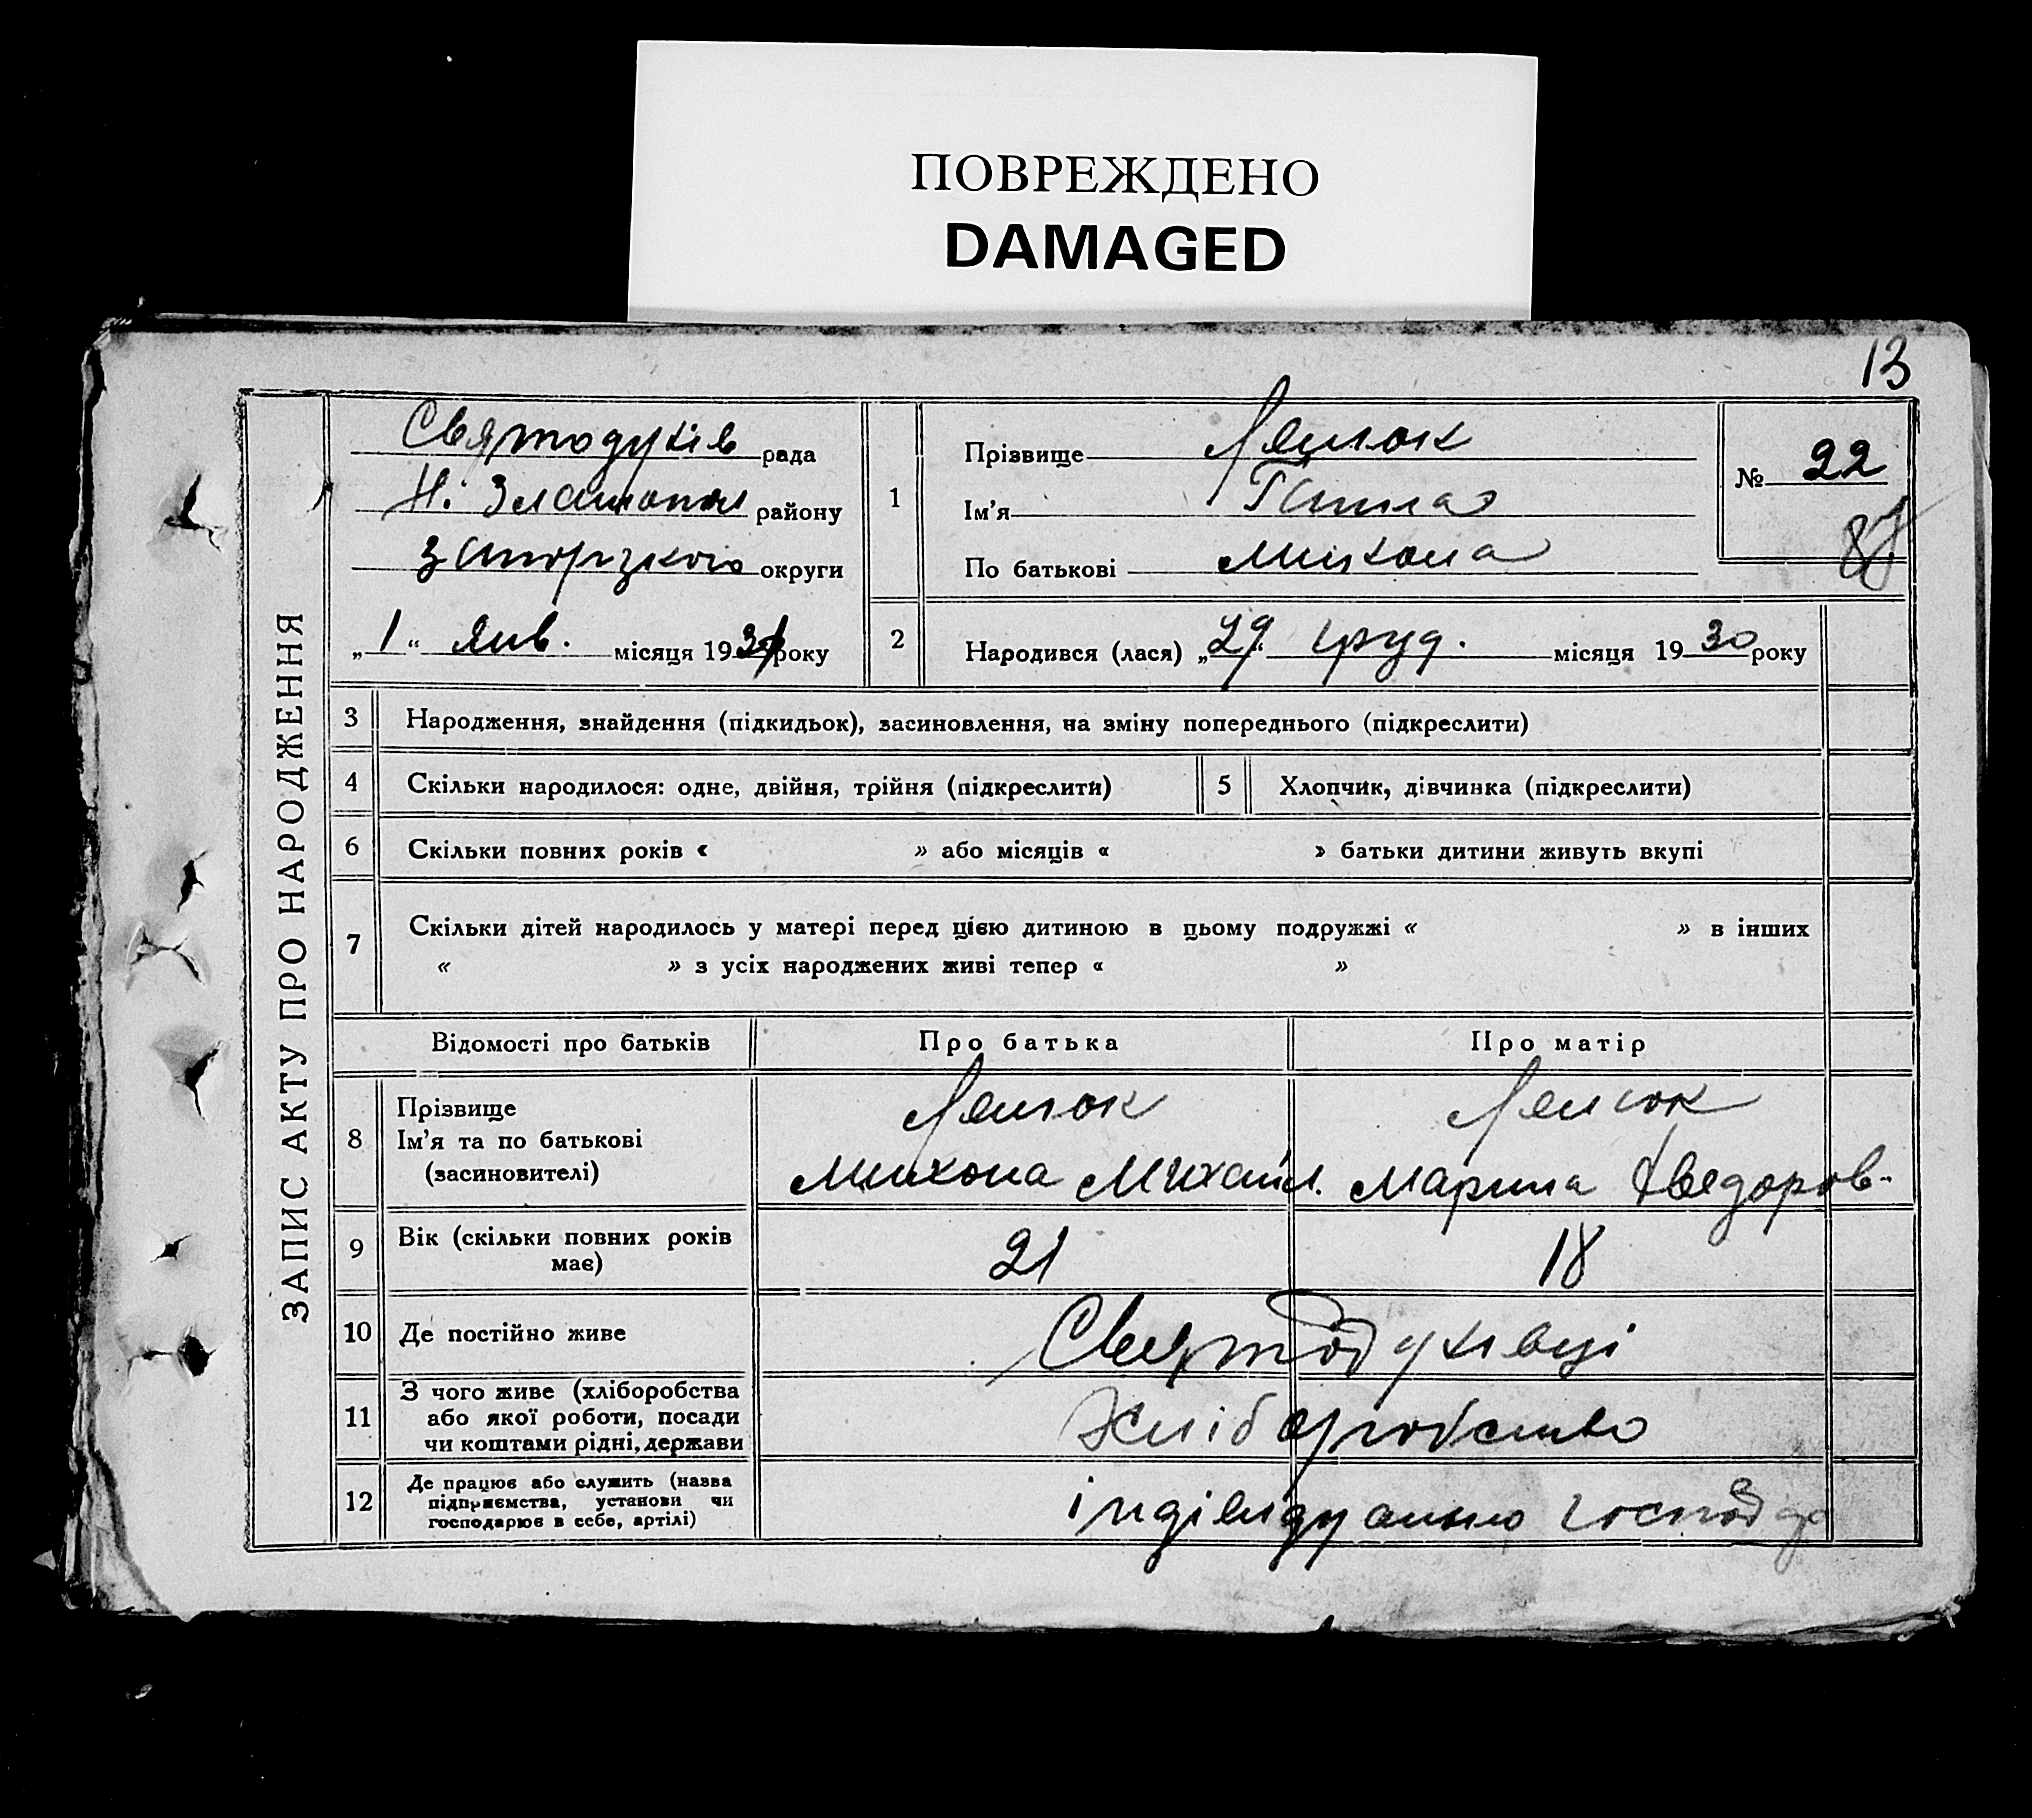 ПОВРЕЖДЕНО
DAMAGED
13
ЗАПИС АКТУ ПРО НАРОДЖЕННЯ
Святодухів рада
Н. Златопол району
Запорізкого округи
„1“ янв. місяця 1931 року
1
Прізвище Ляшок
Ім'я Ганна
По батькові Микона
№ 22
2
Народився (лася) „29“ груд. місяця 1930 року
3 Народження, знайдення (підкидьок), засиновлення, на зміну попереднього (підкреслити)
4 Скільки народилося: одне, двійня, трійня (підкреслити) 5 Хлопчик, дівчинка (підкреслити)
6 Скільки повних років « » або місяців « » батьки дитини живуть вкупі
7 Скільки дітей народилось у матері перед цією дитиною в цьому подружжі « » в інших
« » з усіх народжених живі тепер « »
Відомості про батьків Про батька Про матір
8 Прізвище
Ім'я та по батькові
(засиновителі)
Ляшок Ляшок
Микона Михайл. Марина Хведоров-
9 Вік (скільки повних років
має)
21 18
10 Де постійно живе Святодухівці
11 З чого живе (хліборобства
або якої роботи, посади
чи коштами рідні, держави
Хліборобство
12 Де працює або служить (назва
підприємства, установи чи
господарює в себе, артілі)
індівидуально господар